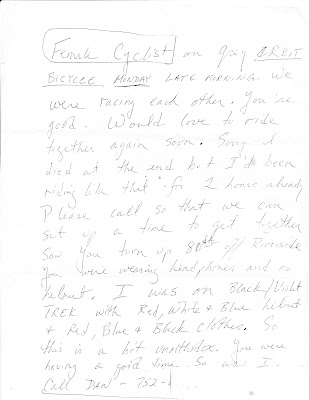 Female Cyclist on grey ORBIT
BICYCLE MONDAY LATE MORNING. We
were racing each other. You're
good. Would love to ride
together again soon. Sorry I
died at the end but I'd been
riding like that for 2 hours already
Please call so that we can
set up a time to get together
Saw you turn up 80th off Riverside
You were wearing headphones and no
helmet. I was on Black/Violet
TREK with Red, White & Blue helmet
& Red, Blue & Black clothes. So
this is a bit unorthodox. You were
having a good time. So was I.
Call DAN - 752-